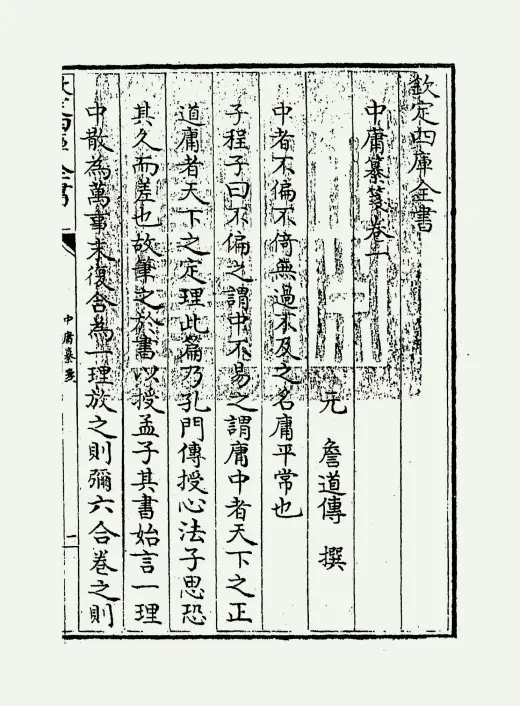 欽定四庫全書
中庸纂箋卷一
元 詹道傳 撰
中者不偏不倚無過不及之名庸平常也
子程子曰不偏之謂中不易之謂庸中者天下之正
道庸者天下之定理此篇乃孔門傳授心法子思恐
其久而差也故筆之於書以授孟子其書始言一理
中散為萬事末復合為一理放之則彌六合卷之則
欽定四庫全書
中庸纂箋
一